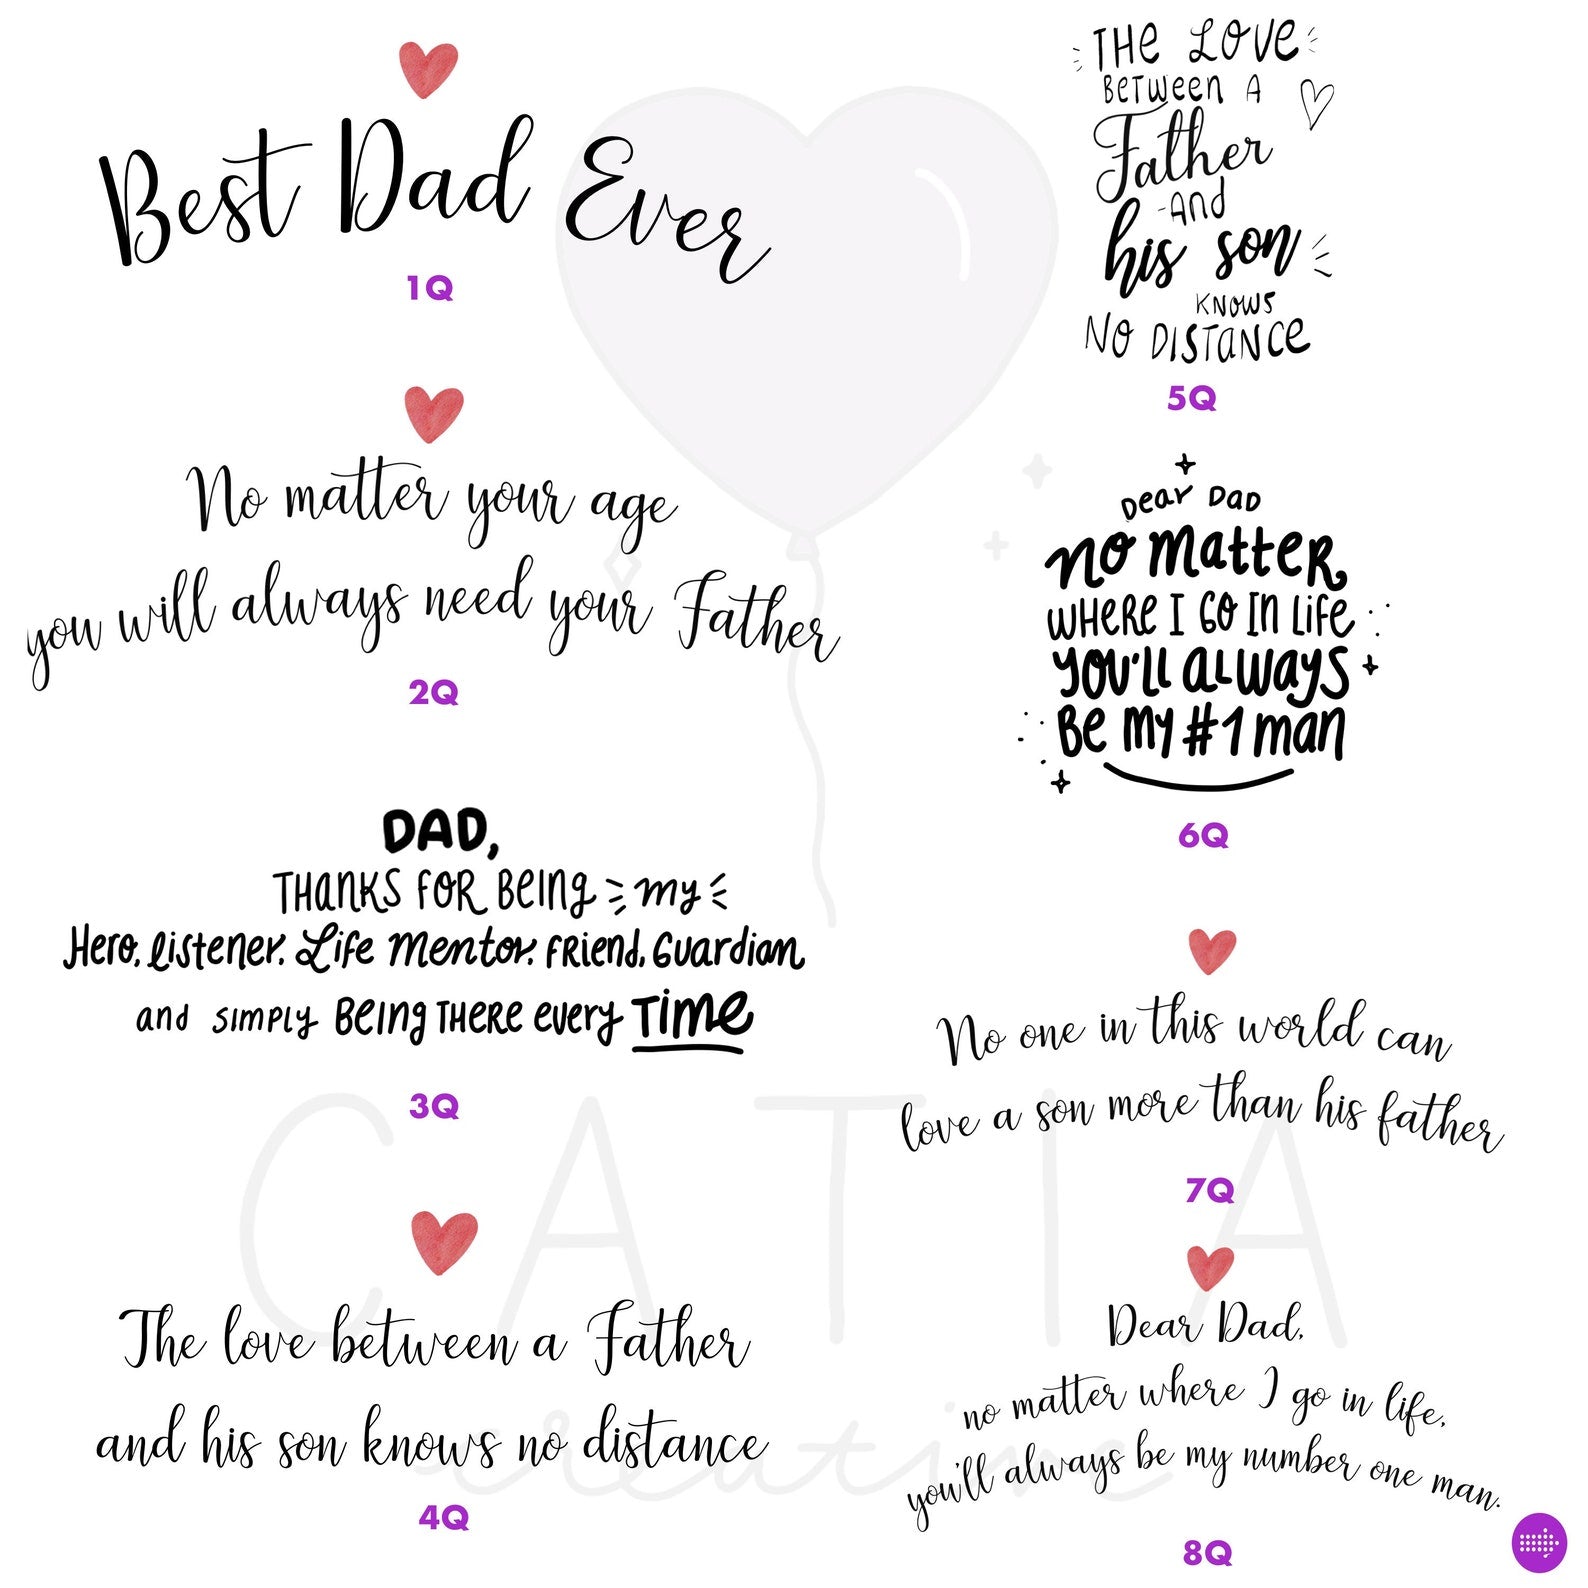 Best Dad Ever
1Q
No matter your age
you will always need your Father
2Q
DAD,
THANKS FOR BEING my
Hero, listener, Life Mentor, FRIEND, Guardian
and SIMPLY BEING THERE every TIME
3Q
The love between a Father
and his son knows no distance
4Q
THE LOVE
BETWEEN A
Father
-AND
his son
KNOWS
NO DISTANCE
5Q
Dear DAD
NO MATTER
WHERE I GO IN LIFE
YOU'LL ALWAYS
Be my #1 man
6Q
No one in this world can
love a son more than his father
7Q
Dear Dad,
no matter where I go in life,
you'll always be my number one man.
8Q
CATIA
creative